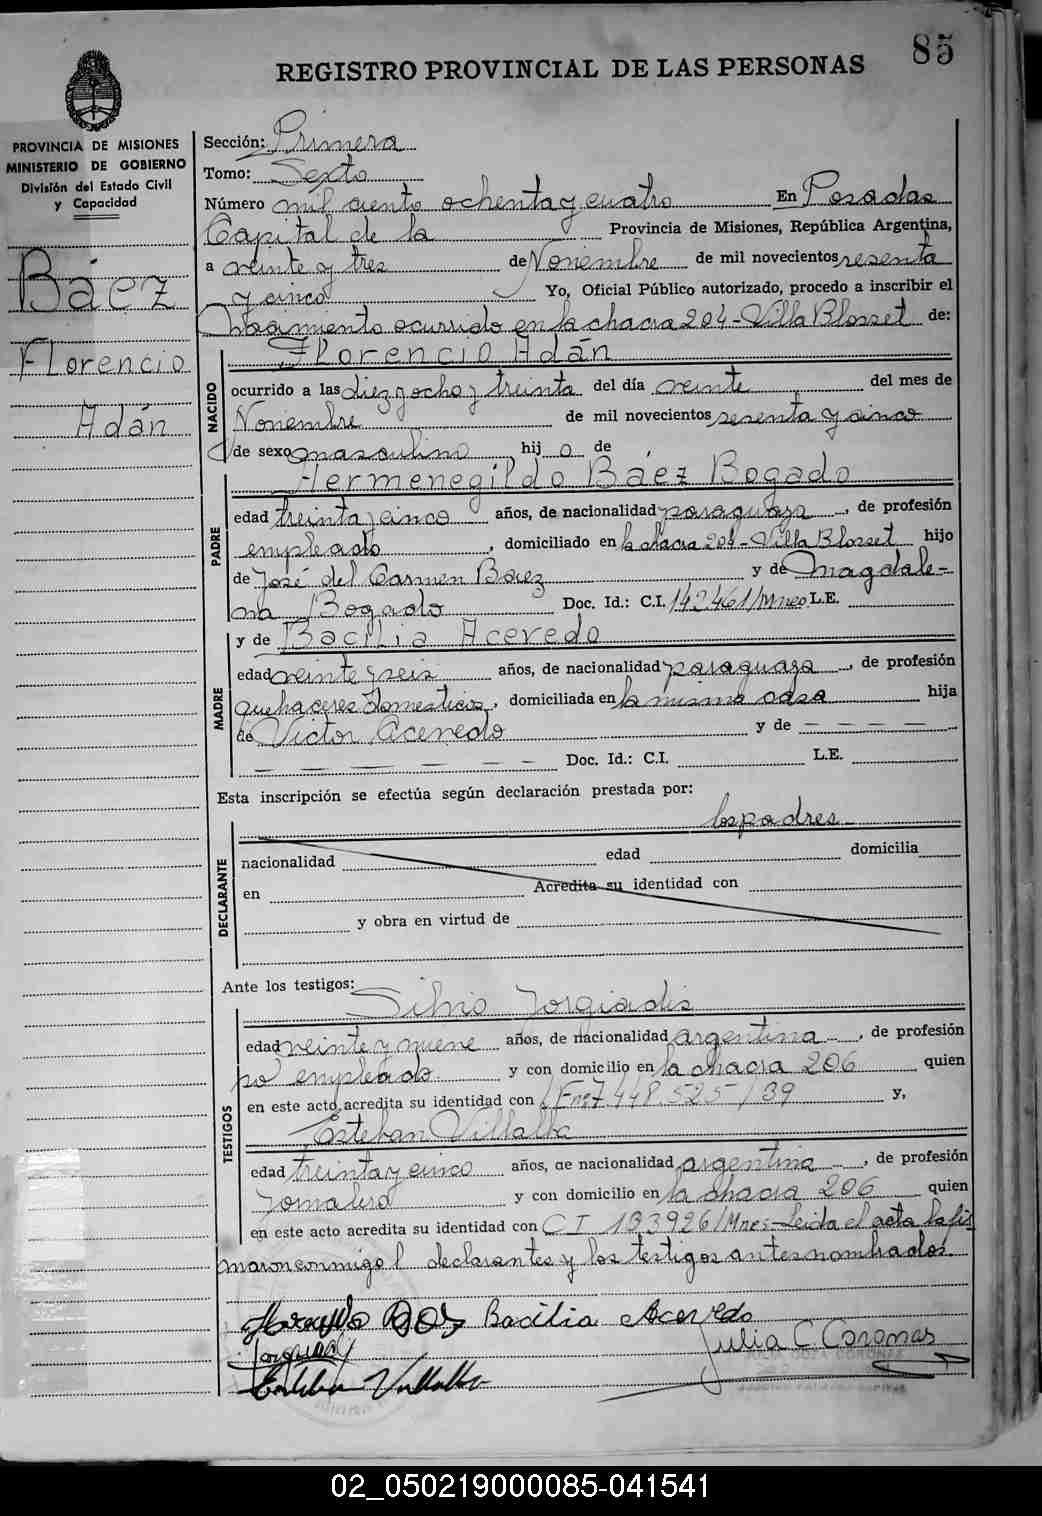 85
REGISTRO PROVINCIAL DE LAS PERSONAS
PROVINCIA DE MISIONES
MINISTERIO DE GOBIERNO
División del Estado Civil
y Capacidad
Báez
Florencio
Adán
Sección: Primera
Tomo: Sexto
Número mil ciento ochenta y cuatro En Posadas
Capital de la Provincia de Misiones, República Argentina,
a veinte y tres de Noviembre de mil novecientos sesenta
y cinco Yo, Oficial Público autorizado, procedo a inscribir el
Nacimiento ocurrido en la chacra 204-Villa Blosset de:
NACIDO
Florencio Adán
ocurrido a las diez y ocho y treinta del día veinte del mes de
Noviembre de mil novecientos sesenta y cinco
de sexo masculino hij o de
PADRE
Hermenegildo Báez Bogado
edad treinta y cinco años, de nacionalidad paraguaya, de profesión
empleado, domiciliado en la chacra 204-Villa Blosset hijo
de José del Carmen Báez y de Magdale-
na Bogado Doc. Id.: C.I. 142461/Mnes L.E.
MADRE
y de Bacilia Acevedo
edad veinte y seis años, de nacionalidad paraguaya, de profesión
quehaceres domesticos, domiciliada en la misma casa hija
de Victor Acevedo y de — — — — —
— — — — — — Doc. Id.: C.I. L.E.
Esta inscripción se efectúa según declaración prestada por:
los padres
DECLARANTE
nacionalidad edad domicilia
en Acredita su identidad con
y obra en virtud de
Ante los testigos:
TESTIGOS
Silvio Jorgiadis
edad veinte y nueve años, de nacionalidad argentina, de profesión
empleado y con domicilio en la chacra 206 quien
en este acto acredita su identidad con 7.448.525/39 y,
Esteban Villalba
edad treinta y cinco años, de nacionalidad argentina, de profesión
Jornalero y con domicilio en la chacra 206 quien
en este acto acredita su identidad con CI 193926/Mnes-Leida el acta la fir
maron conmigo l declarantes y los testigos antes nombrados.
Bacilia Acevedo
Julia C. Coronas
Esteban Villalba
02_050219000085-041541